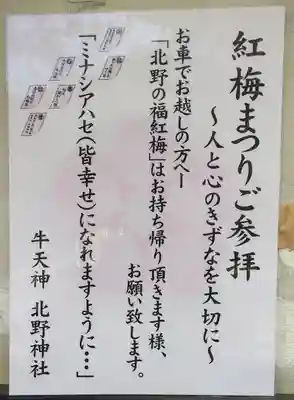 紅梅まつりご参拝
～人と心のきずなを大切に～
お車でお越しの方へー
「北野の福紅梅」はお持ち帰り頂きます様、
お願い致します。
「ミナシアハセ(皆幸せ)になれますように・・・」
牛天神 北野神社